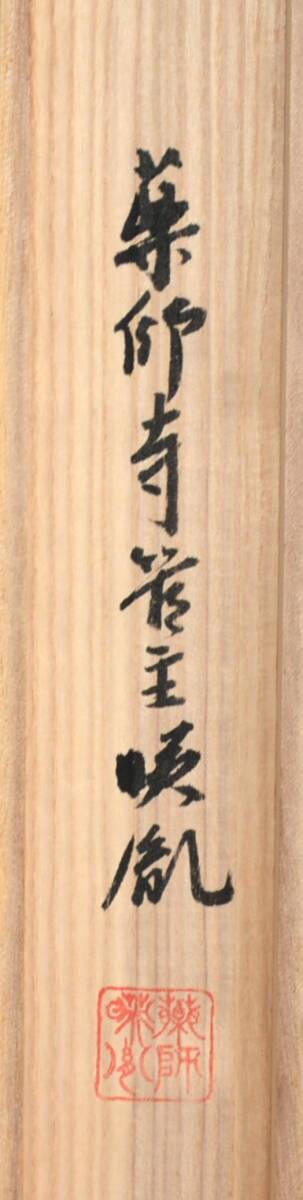 薬師寺管主暎胤
薬師
暎胤